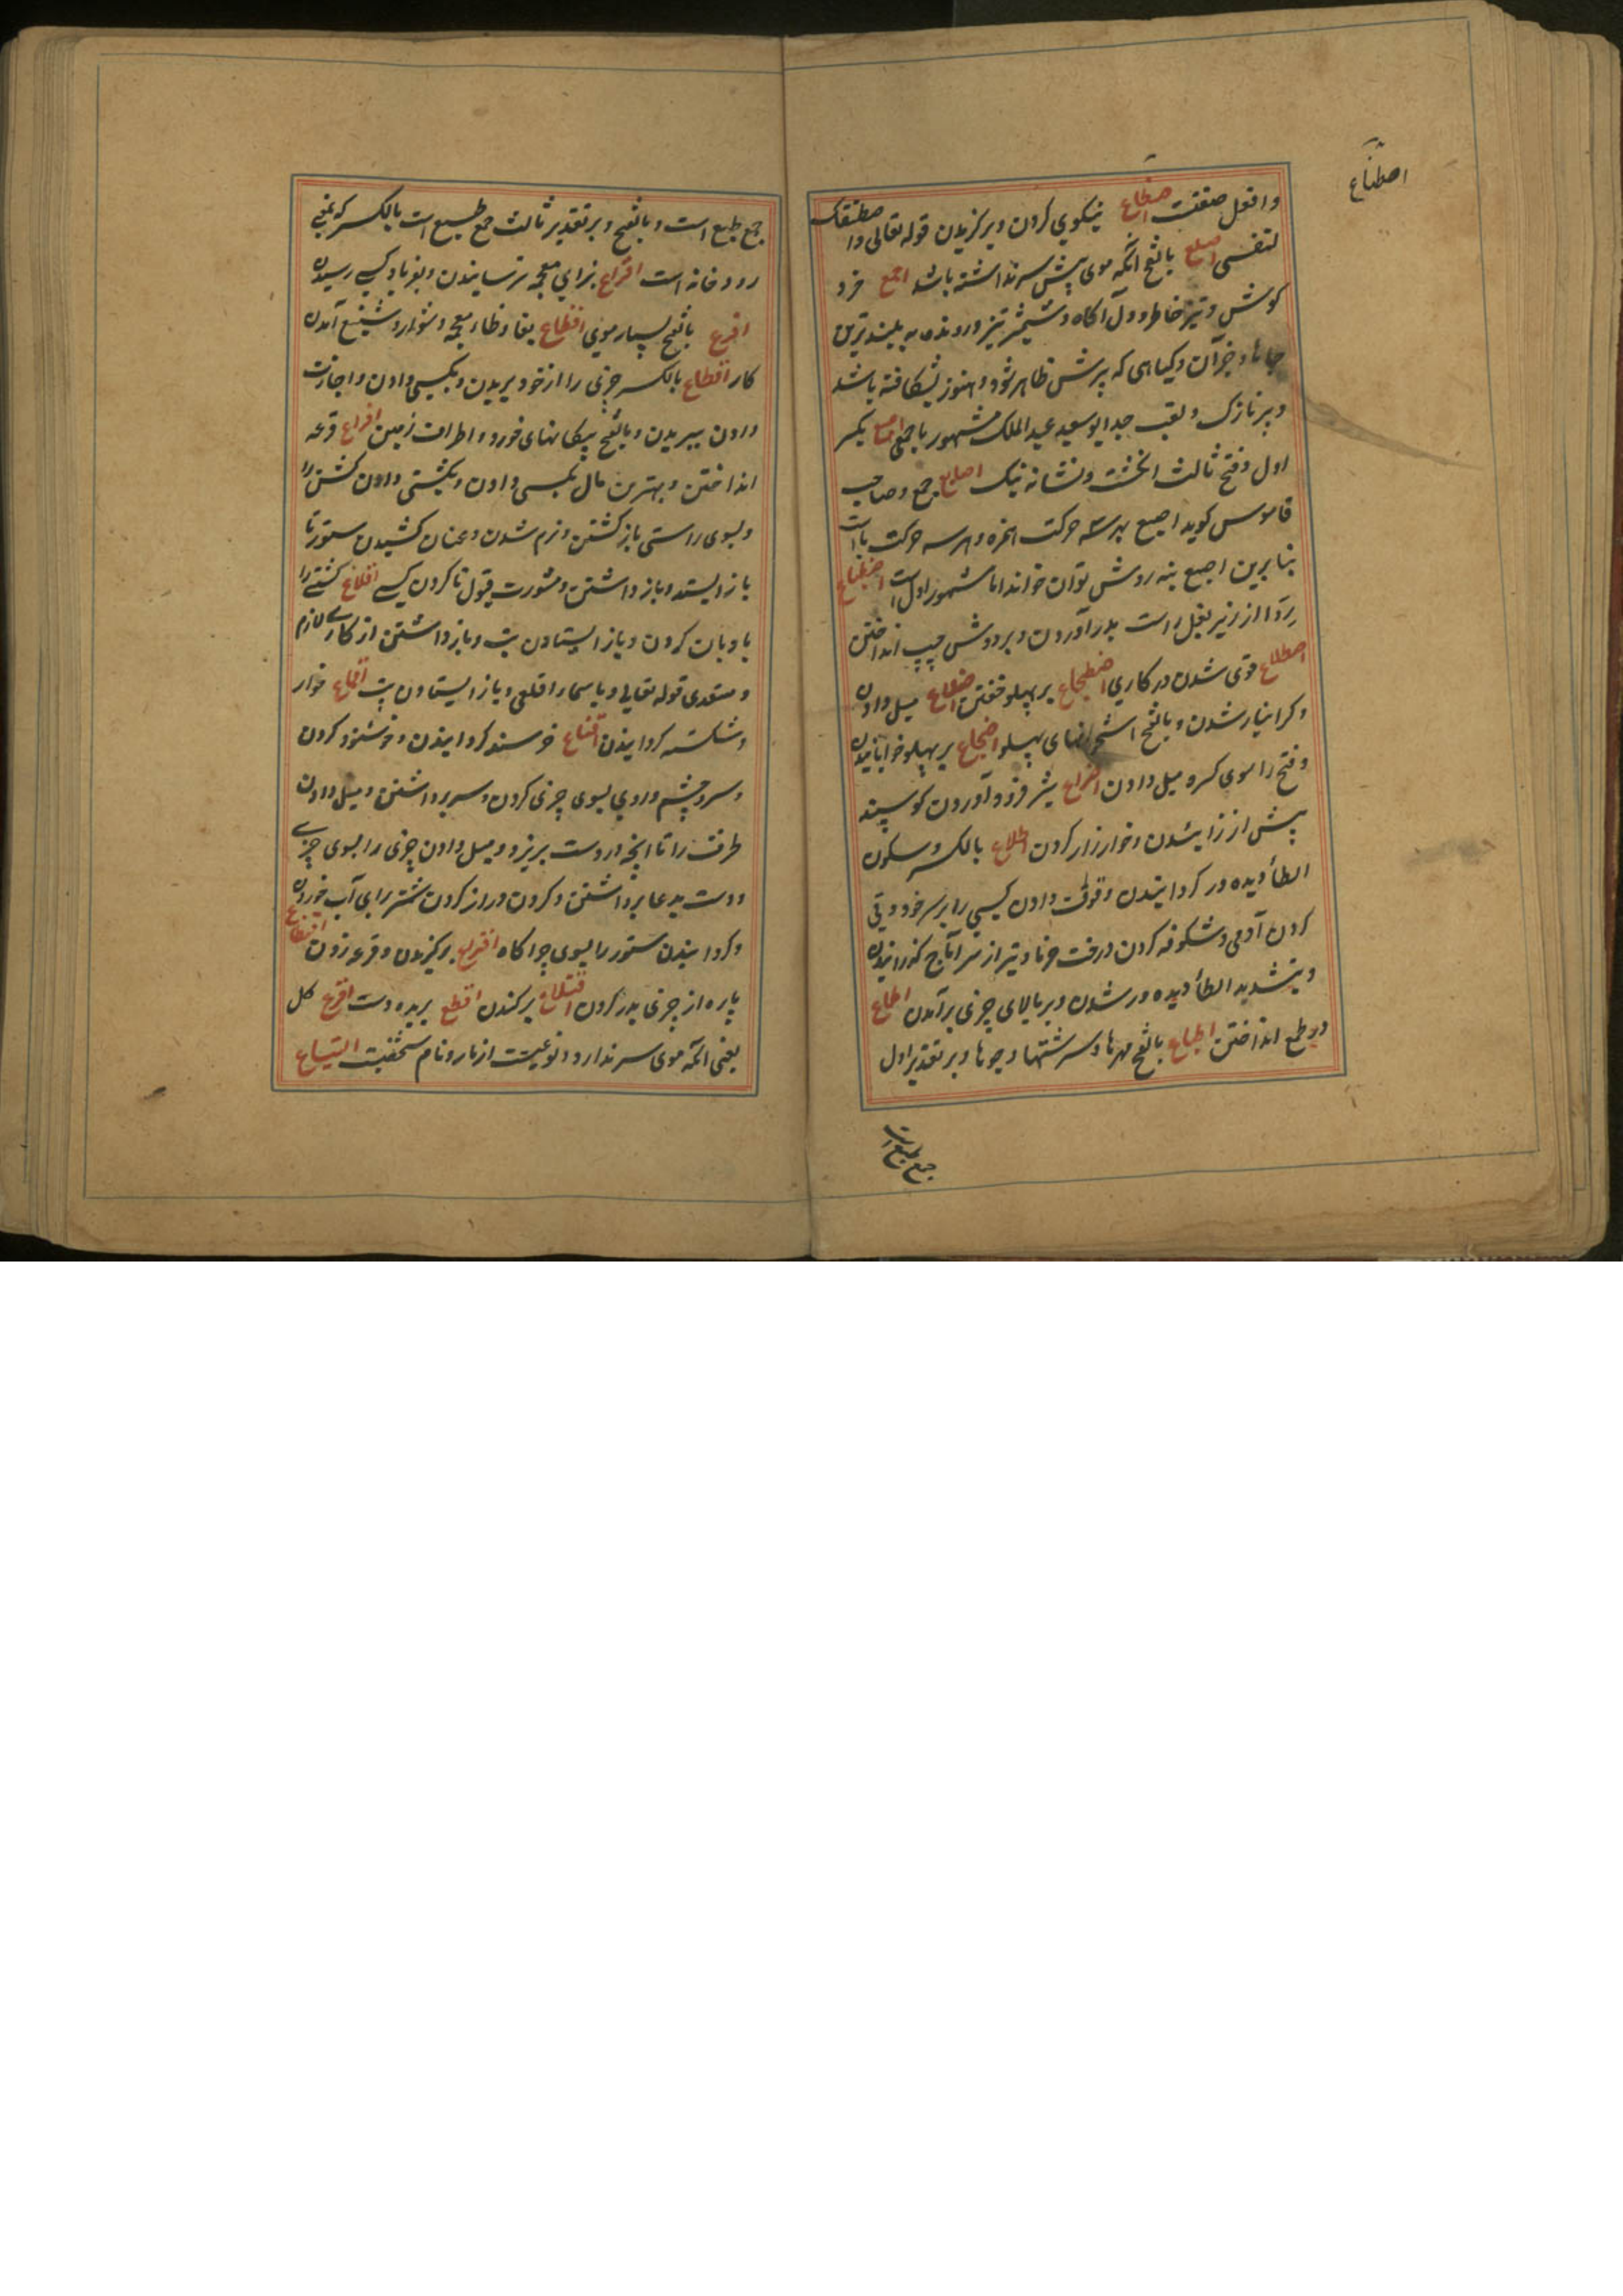 اصطناع
وافعل صفتست اصطناع نیکویی کردن و برگزیدن قوله تعالی و اصطنعتک
لنفسی اصلع بالفتح آنکه موی پیش سر نداشته باشد اصمع خرد
گوش و تیز خاطر و دل آگاه و شمشیر تیز و رونده به بلندترین
جاها و جز آن و گیاهی که برش ظاهر شود و هنوز نشکافته باشد
و پر نازک و لقب جد ابو سعید عبد الملک مشهور باصمعی اصبع بکسر
اول و فتح ثالث انگشت و نشانه نیک اصابع جمع و صاحب
قاموس گوید اصبع بهر سه حرکت همزه و هر سه حرکت با است
بنابرین اصبع بنه روش توان خواند اما مشهور اول است اضطباع
ردا از زیر بغل راست بدر آوردن و بر دوش چپ انداختن
اضطلاع قوی شدن در کاری اضطجاع بر پهلو خفتن اضلاع میل دادن
و گرانبار شدن و بالفتح استخوانهای پهلو اضجاع بر پهلو خوابانیدن
و فتح را سوی کسره میل دادن اضراع شیر فرود آوردن گوسپند
پیش از زائیدن و خوار زار کردن اطلاع بالکسر و سکون
الطا دیده ور گردانیدن و وقوف دادن کسی را بر سر خود و قی
کردن آدمی و شکوفه کردن درخت خرما و تیر از سر آماج گذرانیدن
و بتشدید الطا دیده ور شدن و بر بالای چیزی بر آمدن اطماع
در طمع انداختن اطباع بالفتح مهرها و سرشتها و جوها و بر تقدیر اول
جمع طبع است
جمع طبع است و بالفتح و بر تقدیر ثالث جمع طبع است بالکسر که بمعنی
رودخانه است افزاع بزای معجمه ترسانیدن و بفریاد کسی رسیدن
افرع بالفتح بسیار موی افظاع بفا و ظاء معجمه دشوار و شنیع آمدن
کار اقطاع بالکسر چیزی را از خود بریدن و بکسی دادن و اجازت
دادن ببریدن و بالفتح پیکانهای خورد و اطراف زمین اقراع قرعه
انداختن و بهترین مال بکسی دادن و بکشتی دادن کشن را
و بسوی راستی باز گشتن و نرم شدن و عنان کشیدن ستور تا
باز ایستد و باز داشتن و مشورت قبول نا کردن کسی اقلاع کشتی را
بادبان کردن و باز ایستادن تب و باز داشتن از کاری لازم
و متعدی قوله تعالی و یا سماء اقلعی و باز ایستادن تب اقماع خوار
و شکسته گردانیدن اقناع خرسند گردانیدن و خوشنود کردن
و سر و چشم و روی بسوی چیزی کردن و سر برداشتن و میل دادن
ظرف را تا آنچه در دست بریزد و میل دادن چیزی را بسوی چیزی
و دست بدعا برداشتن و گردن دراز کردن شتر برای آب خوردن
و گردانیدن ستور را بسوی چراگاه اقتراع برگزیدن و قرعه زدن اقتطاع
پاره از چیزی بدر کردن اقتلاع بر کندن اقطع بریده دست اقرع کل
یعنی آنکه موی سر ندارد و نوعیست از مار و نام شخصیت التیاع